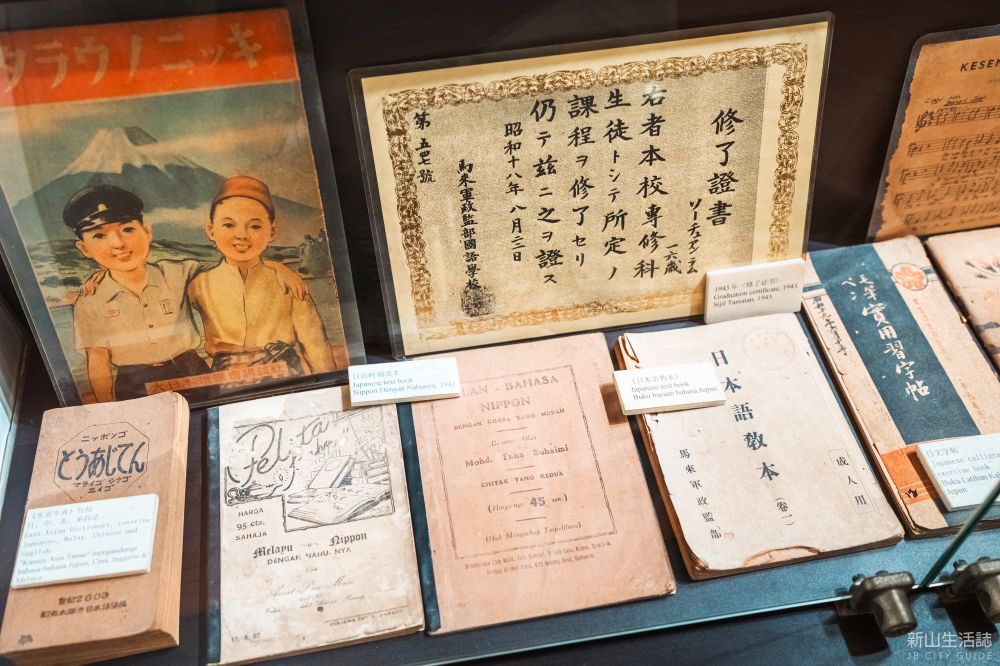 キッニノウラタ
修了證書
一六歳
右者本校專修科
生徒トシテ所定ノ
課程ヲ修了セリ
仍テ茲ニ之ヲ證ス
昭和十八年八月三日
馬來軍政監部國語學校
第五四七號
1943年《修了证书》
Graduation certificate, 1943.
Sijil Tamatan, 1943.
KESEN
日治时期课本
Japanese text book
Nippon Dengan Nahunya, 1942
《日本语教本》
Japanese text book
Buku bacaan bahasa Jepun
日文字帖
Japanese calligra
exercise book
Buku Latihan Ka
Jepun
ニッポンゴ
とうあじてん
マライゴ シナゴ
エイゴ
《东亚字典》包括
日、中、英、巫四语。
East Asian Dictionary, covering
Japanese, Malay, Chinese and
English
"Kamus Asia Timur" mengandungi
bahasa-bahasa Jepun, Cina, Inggeris &
Melayu
Pelita
HARGA
95 cts.
SAHAJA
Melayu Nippon
DENGAN NAHU. NYA
UAN - BAHASA
NIPPON
DENGAN CHARA YANG MUDAH
Mohd. Taha Suhaimi
CHITAK YANG KEDUA
45 sen.
日本語教本
(卷一)
成人用
馬來軍政監部
實用習字帖
新山生活誌
JB CITY GUIDE